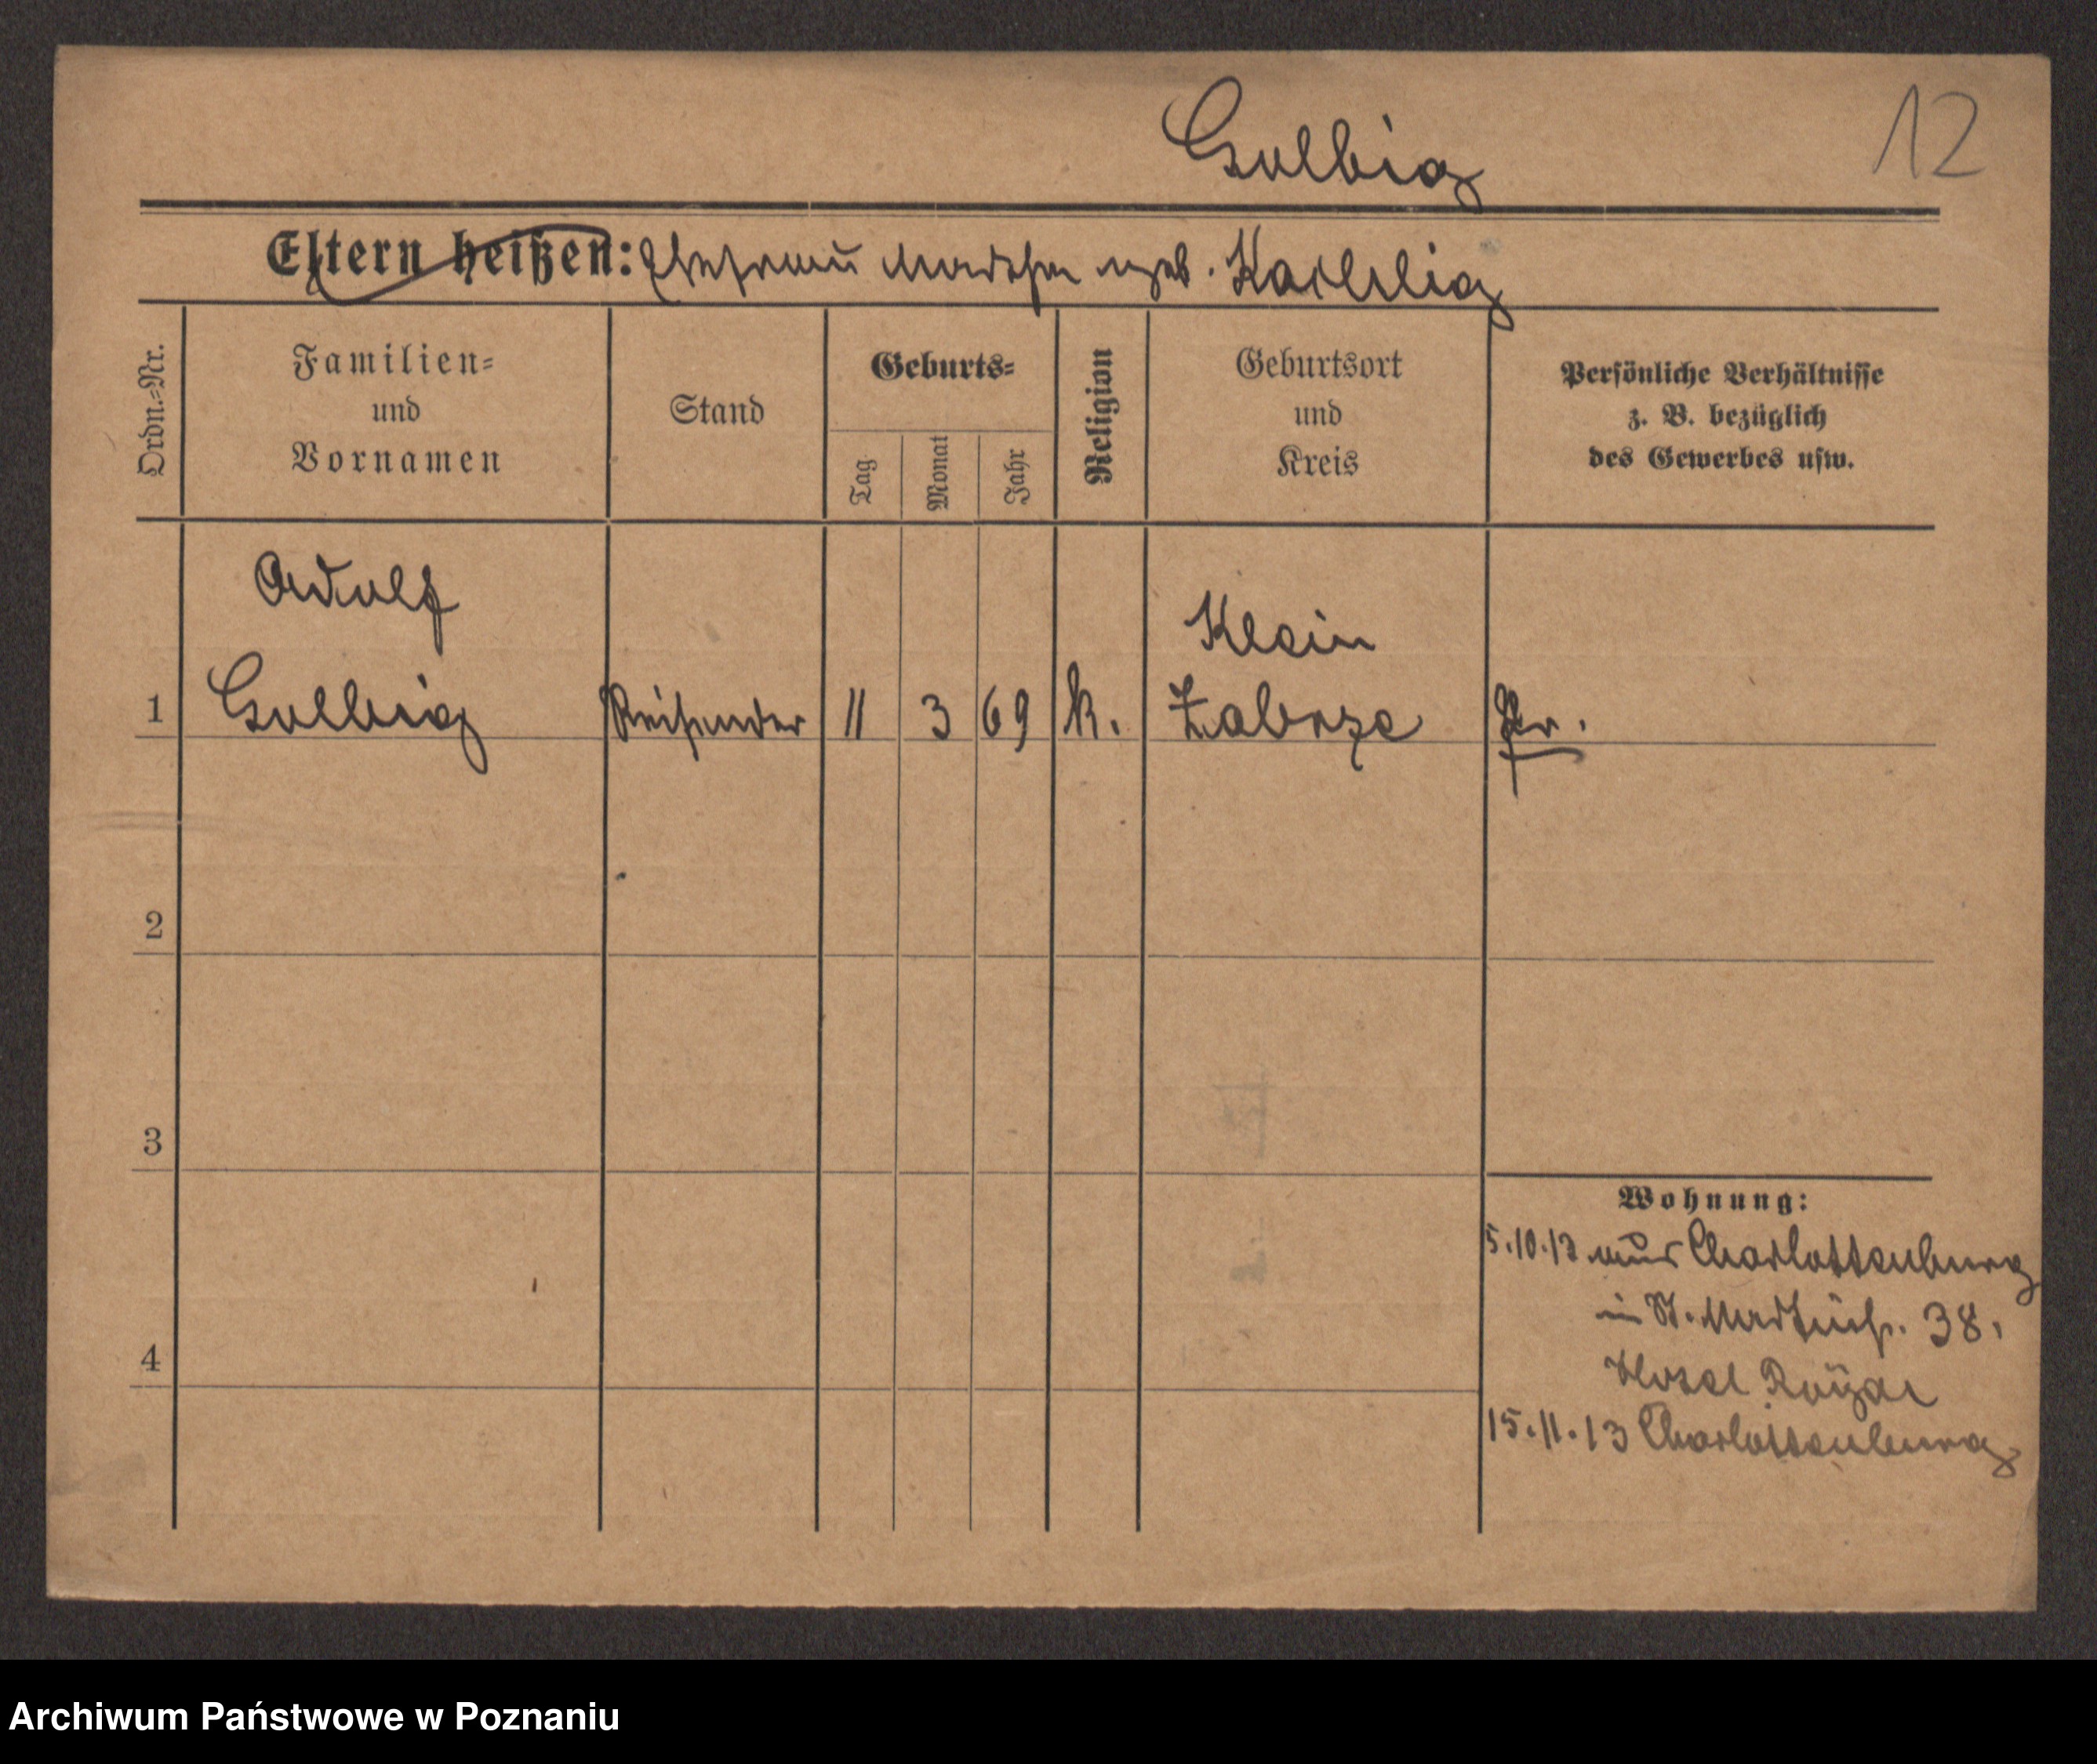 Golbig
12
Eltern heißen: Ehefrau Martha geb. Kachlig
Ordn.-Nr.
Familien=
und
Vornamen
Stand
Geburts=
Tag
Monat
Jahr
Religion
Geburtsort
und
Kreis
Persönliche Verhältnisse
z. B. bezüglich
des Gewerbes usw.
Adolf
Klein
1 Golbig Reisender 11 3 69 k. Zabrze Pr.
2
3
4
Wohnung:
5.10.13 aus Charlottenburg
in St. Martinstr. 38.
Hotel Royal
15.11.13 Charlottenburg
Archiwum Państwowe w Poznaniu